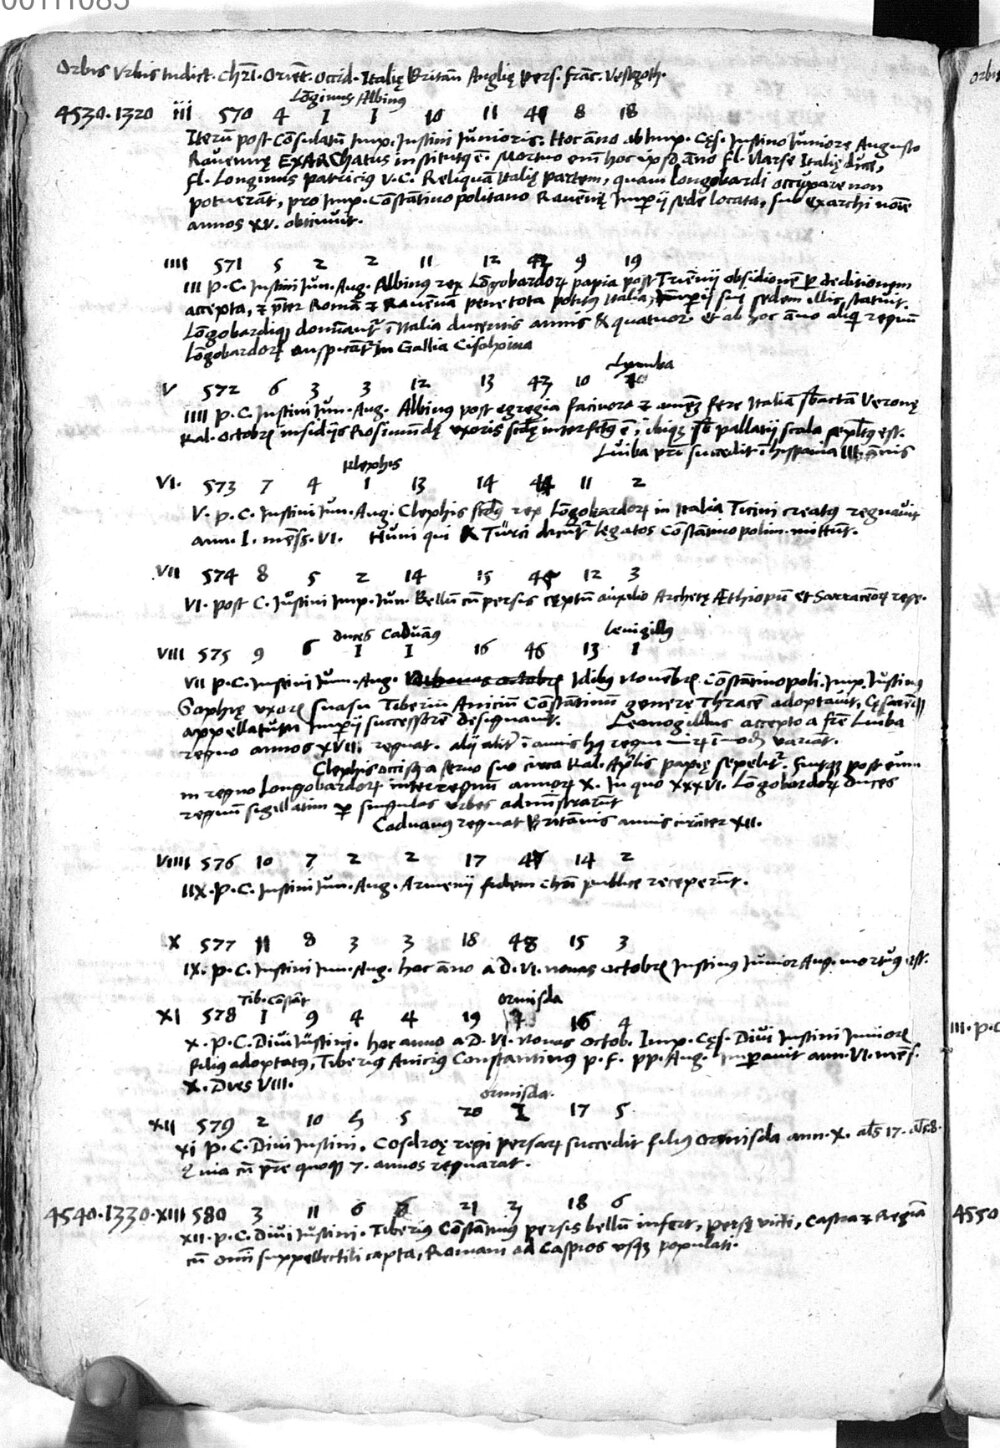 00111085
Orbis Vrbis Indict. Chrī. Oriēt. Occid. Italię Britañ Anglię Pers. Frāc. Vesegoth.
Lōginus Albinus
4530. 1320 iii 570 4 I I 10 11 41 8 18
Iterū post Cōsulatū Imp. Iustini Iunioris. Hoc āno ab Imp. Cęs. Iustino Iuniore Augusto
Rauennę EXARChatus institutꝰ ē. Mortuo eniʒ hoc ipso āno Fl. Narse Italię duce,
Fl. Longinus patricius V. C. Reliquā Italię partem, quam Longobardi occupare non
potuerāt, pro Imp. Constātinopolitano Rauēnę Imperij sede locata, sub exarchi noīe
annos XV. obtinuit.
IIII 571 5 2 2 11 12 42 9 19
III P. C. Iustini Iun. Aug. Albinus rex Lōgobardoꝝ papia post Triēnij obsidionē ꝑ deditionem
accepta, & p̄ter Romā & Rauēnā pene tota potitus Italia, Imperij sui sedem illic statuit.
Lōgobardiqꝫ domināt̄ ī Italia ducentis annis & quatuor. et ab hoc āno aliqui regnū
Lōgobardoꝝ auspicāt̄ in Gallia Cisalpina
Lyuuba
V 572 6 3 3 12 13 43 10 20
IIII P. C. Iustini Iun. Aug. Albinus post egregia facinora & omnē fere Italiā sbactā Veronę
Kal. Octobrꝭ insidijs Rosimundę vxoris suę interfectꝰ ē, ibiqꝫ sb pallatij scala sepultꝰ est.
Luiba succedit ī hispania III annis
Klephis
VI. 573 7 4 1 13 14 44 11 2
V. P. C. Iustini Iun. Aug. Clephis scds rex Lōgobardoꝝ in Italia Ticini creatꝰ regnauit
ann. I. mēs. VI. Huni qui & Turci dicūt̄ legatos Cōstātinopolim mittūt.
VII 574 8 5 2 14 15 45 12 3
VI. post C. Iustini Imp. Iun. Bellū cū persis cęptū auxilio Archetę Æthiopū et Sarracenoꝝ rege.
duces Caduāꝰ Leuigillꝰ
VIII 575 9 6 I I 16 46 13 1
VII P. C. Iustini Iun. Aug. Idibꝰ Nouēbrꝭ Cōstātinopoli. Imp. Iustinꝰ
Sophię vxorꝭ suasu Tiberiu Aniciū Constātinuʒ genere Thracē adoptauit, Cęsarēqꝫ
appellatum Imperij successorē designauit. Leonogillus accepto a frē Luiba
regno annos XVIII. regnat. alij alit̄ ī annis hꝰ regni variāt.
Clephis occisꝰ a seruo suo circa Kal. Aprlis papię sepelit̄. fuitqꝫ post eum
in regno Longobardoꝝ interregnū annoꝝ X. In quo XXXVI. Lōgobardoꝝ duces
regnū sigillatim ꝑ singulas vrbes administrarūt
Caduanꝰ regnat Britānis annis circiter XII.
VIIII 576 10 7 2 2 17 47 14 2
IIX. P. C. Iustini Iun. Aug. Armenij fidem chrī publice receperūt.
X 577 11 8 3 3 18 48 15 3
IX. P. C. Iustini Iun. Aug. hoc āno a D. VI. nonas octobrꝭ Iustinꝰ Iunior Aug. mortuꝰ est.
Tib. Cōstāt ormisda
XI 578 I 9 4 4 19 16 4
X. P. C. Diui Iustini. hoc anno a D. VI. Nonas Octob. Imp. Cęs. Diui Iustini Iuniorꝭ
filiꝰ adoptatꝰ, Tiberiꝰ Aniciꝰ Constantinus P. F. PP. Aug. Imperauit ann. VI. mēs.
X. Dies VIII.
ormisda.
XII 579 2 10 5 5 20 I 17 5
XI P. C. Diui Iustini. Cosdroę regi persarꝫ succedit filiꝰ Ormisda ann. X. als 17. als 8.
Quia cū pr̄e quoqꝫ 7. annos regnarat.
4540. 1330. XIII 580 3 11 6 6 21 2 18 6
XII. P. C. Diui Iustini. Tiberiꝰ Cōstātinꝰ persis bellū infert, persę victi, Castra & Regiā
cū omī suppellectili capta, Romani ad Caspios vsqꝫ populati.
orbis
III. P. C
4550